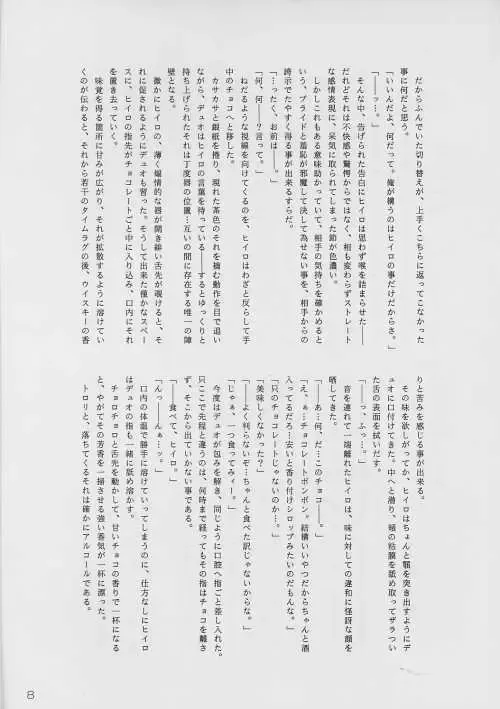 だからふんでいた切り替えが、上手くこちらに返ってこなかった
事に何だと思う。
「いいんだよ、何だって。俺が構うのはヒイロの事だけだからさ。」
「――ッ…。」
そんな中、告げられた告白にヒイロは思わず喉を詰まらせた――
だれどそれは不快感や驚愕からではなく、相も変わらずストレート
な感情表現に、呆気に取られてしまった節が色濃い。
しかしこれもある意味助かっていて、相手の気持ちを確かめると
いう、プライドと羞恥が邪魔して決して為せない事を、相手からの
誇示でたやすく得る事が出来るすらだ。
「…ったく、お前は――。」
「何、何――？言って。」
ねだるような視線を向けてくるのを、ヒイロはわざと反らして手
中のチョコへと移した。
カサカサと銀紙を捲り、現れた茶色のそれを摘む動作を目で追い
ながら、デュオはヒイロの言葉を待っている――するとゆっくりと
持ち上げられたそれは丁度唇の位置…互いの間に存在する唯一の障
壁となる。
微かにヒイロの、薄く煽情的な唇が開き緋い舌先が覗けると、そ
れに促されるようにデュオも習った。そうして出来た僅かなスペー
スに、ヒイロの指先がチョコレートごと中に入り込み、口内にそれ
を置き去っていく。
味覚を得る箇所に甘みが広がり、それが拡散するように溶けてい
くのが伝わると、それから若干のタイムラグの後、ウイスキーの香
りと苦みを感じる事が出来る。
その味を欲しがってか、ヒイロはちょんと顎を突き出すようにデ
ュオに口付けてきた。中へと潜り、頬の粘膜を舐め取ってザラつい
た舌の表面を拭いだす。
「――っ、ふっ…。」
音を連れて一端離れたヒイロは、味に対しての違和に怪訝な顔を
晒してきた。
「――あ…何、だ…このチョコ――。」
「え、ぁ…チョコレートボンボン。結構いいやつだからちゃんと酒
入ってるだろ…安いと香り付けシロップみたいのだもんな。」
「只のチョコレートじゃないのか…。」
「美味しくなかった？」
「――よく判らないぞ…ちゃんと食べた訳じゃないからな。」
「じゃぁ、一つ食ってみィー。」
今度はデュオが包みを解き、同じように口腔へ指ごと差し入れた。
只ここで先程と違うのは、何時まで経ってもその指はチョコを離さ
ず、そこから出ていかない事である。
「――食べて、ヒイロ。」
「んっ――んぁーッ。」
口内の体温で勝手に溶けていってしまうのに、仕方なしにヒイロ
はデュオの指も一緒に舐め溶かす。
チョロチョロと舌先を動かして、甘いチョコの香りで一杯になる
と、やがてその芳香を一掃させる強い香気が一杯に漂った。
トロリと、落ちてくるそれは確かにアルコールである。
8